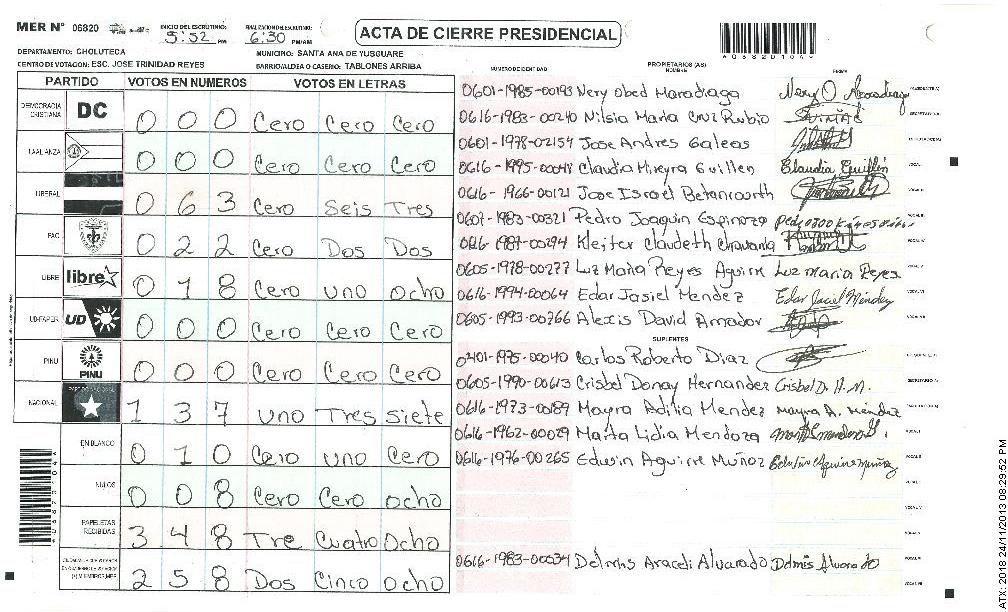 MER N° 06820
INICIO DEL ESCRUTINIO: 5:52 PM
FINALIZACION DEL ESCRUTINIO: 6:30 PM/AM
ACTA DE CIERRE PRESIDENCIAL
DEPARTAMENTO: CHOLUTECA
MUNICIPIO: SANTA ANA DE YUSGUARE
CENTRO DE VOTACION: ESC. JOSE TRINIDAD REYES
BARRIO/ALDEA O CASERIO: TABLONES ARRIBA
PARTIDO VOTOS EN NUMEROS VOTOS EN LETRAS
DEMOCRACIA CRISTIANA DC 0 0 0 Cero Cero Cero
LA ALIANZA 0 0 0 Cero Cero Cero
LIBERAL 0 6 3 Cero Seis Tres
PAC 0 2 2 Cero Dos Dos
LIBRE libre 0 1 8 Cero uno ocho
UD-FAPER UD 0 0 0 Cero Cero Cero
PINU PINU 0 0 0 Cero Cero Cero
NACIONAL 1 3 7 uno Tres siete
EN BLANCO 0 1 0 Cero uno Cero
NULOS 0 0 8 Cero Cero ocho
PAPELETAS RECIBIDAS 3 4 8 Tre Cuatro Ocho
2 5 8 Dos Cinco ocho
NUMERO DE IDENTIDAD PROPIETARIOS (AS) NOMBRE FIRMA
0601-1985-00193 Nery Obed Maradiaga
0616-1983-00240 Nilsia Maria Cruz Rubio
0601-1978-02154 Jose Andres Galeas
0616-1995-00048 Claudia Mireyra Guillen Claudia Guillén
0616-1966-00121 Jose Israel Betancourth
0607-1983-00321 Pedro Joaquin Espinoza
0616-1987-00294 Kleiter Claudeth Chavarria
0605-1978-00277 Luz Maria Reyes Aguirre Luz maria Reyes
0616-1994-00064 Edar Jasiel Mendez Edar Jaciel Méndez
0605-1993-00766 Alexis David Amador
SUPLENTES
0401-1975-00040 Carlos Roberto Diaz
0605-1990-00613 Crisbel Donay Hernandez Crisbel D. H. M.
0616-1973-00189 Mayra Adilia Mendez Mayra A. Méndez
0616-1962-00029 Marta Lidia Mendoza
0616-1976-00265 Edwin Aguirre Muñoz
0616-1983-00034 Delmis Araceli Alvarado Delmis Alvarado
ATX: 2018 24/11/2013 08:29:52 PM